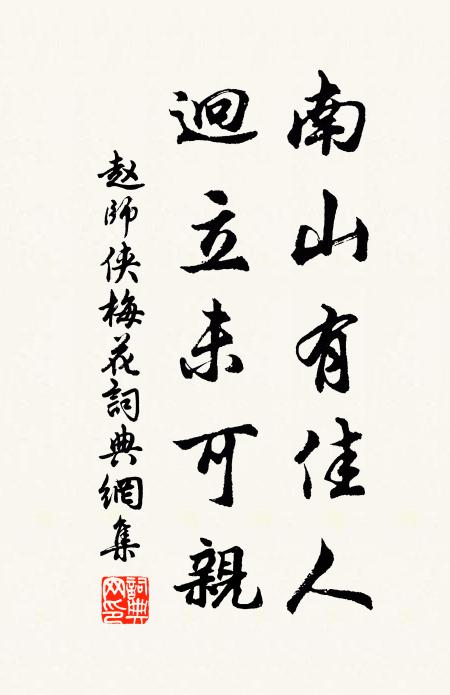 南山有佳人
迥立未可親
赵師侠梅花詞典網集
詞典网印